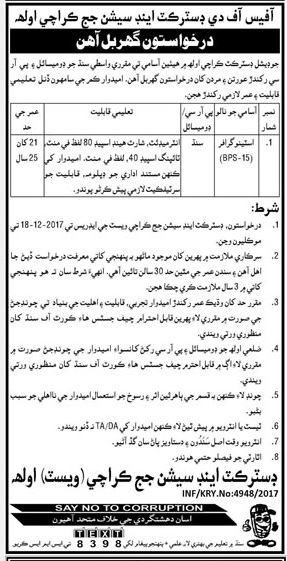 آفيس آف دي ڊسٽرڪٽ اينڊ سيشن جج ڪراچي اولهه
درخواستون گهربل آهن
جوڊيشل ڊسٽرڪٽ ڪراچي اولهه ۾ هيٺين آسامي تي مقرري واسطي سنڌ جو ڊوميسائل ۽ پي آر سي
رکندڙ عورتن ۽ مردن کان درخواستون گهربل آهن. اميدوار ڪمر جي سامهون ڏنل تعليمي
قابليت ۽ عمر لازمي رکندڙ هجن.
نمبر شمار
آسامي جو نالو
پي آر سي/ ڊوميسائل
تعليمي قابليت
عمر جي حد
1.
اسٽينوگرافر (BPS-15)
سنڌ
انٽرميڊئيٽ، شارٽ هينڊ اسپيڊ 80 لفظ في منٽ،
ٽائپنگ اسپيڊ 40، لفظ في منٽ. اميدوار کي
ڪنهن مستند اداري جو ڊپلومه، قابليت جو
سرٽيفڪيٽ لازمي پيش ڪرڻو پوندو.
21 کان
25 سال
شرط:
1. درخواستون، ڊسٽرڪٽ اينڊ سيشن جج ڪراچي ويسٽ جي ايڊريس تي 18-12-2017 تي
موڪليون وڃن.
2. سرڪاري ملازمت ۾ پهرين کان موجود ماڻهو به پنهنجي کاتي معرفت درخواست ڏيڻ جا
اهل آهن ۽ سندن عمر جي مٿين حد 30 سالن تائين آهي. انهيءَ شرط سان ته هو پنهنجي
کاتي ۾ 3 سال ملازمت ڪري چڪا هجن.
3. مقرر حد کان وڌيڪ عمر رکندڙ اميدوار تجربي، قابليت ۽ اهليت جي بنياد تي چونڊجڻ
جي صورت ۾ مقرريءَ لاءِ پهرين قابل احترام چيف جسٽس هاءِ ڪورٽ آف سنڌ کان
منظوري ورتي ويندي.
4. ضلعي اولهه جو ڊوميسائل ۽ پي آر سي رکڻ کانسواءِ اميدوار جي چونڊجڻ صورت ۾
مقرريءَ لاءِ اڳ ۾ قابل احترام چيف جسٽس هاءِ ڪورٽ آف سنڌ کان منظوري ورتي
ويندي.
5. چونڊ لاءِ ڪنهن به قسم جي ٻاهرئين اثر ۽ رسوخ جو استعمال اميدوار جي نااهلي جو سبب
بڻبو.
6. ٽيسٽ يا انٽرويو ۾ پيش ٿيڻ لاءِ ڪنهن اميدوار کي TA/DA نه ڏنو ويندو.
7. انٽرويو وقت اصل سَنَدُون ۽ دستاويز پاڻ سان گڏ آڻيو.
8. اٿارٽي جو فيصلو حتمي هوندو.
ڊسٽرڪٽ اينڊ سيشن جج ڪراچي (ويسٽ) اولهه
INF/KRY.No:4948/2017
SAY NO TO CORRUPTION
اسان دهشتگردي جي خلاف متحد آهيون
TEXT
8398
سنڌ ۾ تعليم جي بهتري لاءِ
تي ايس ايم ايس ڪريو